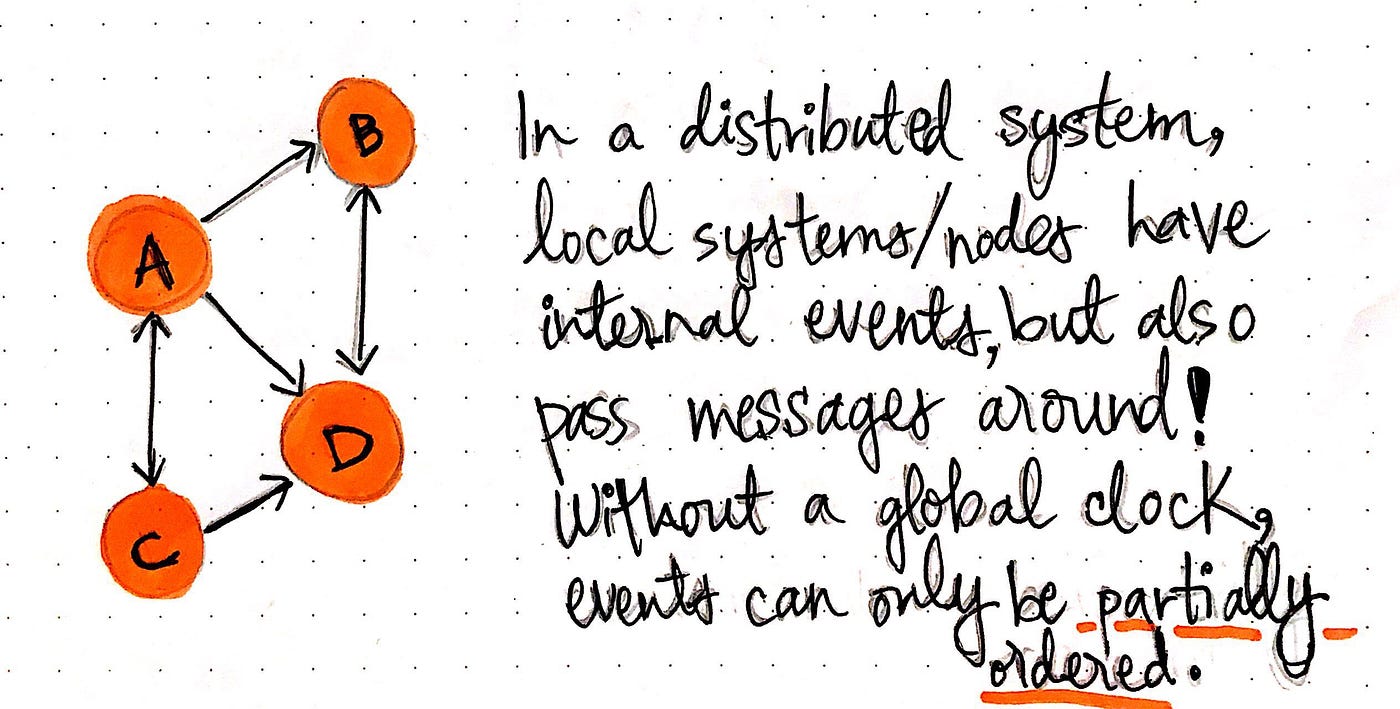 B
A
D
C
In a distributed system,
local systems/nodes have
internal events, but also
pass messages around!
Without a global clock,
events can only be partially
ordered.